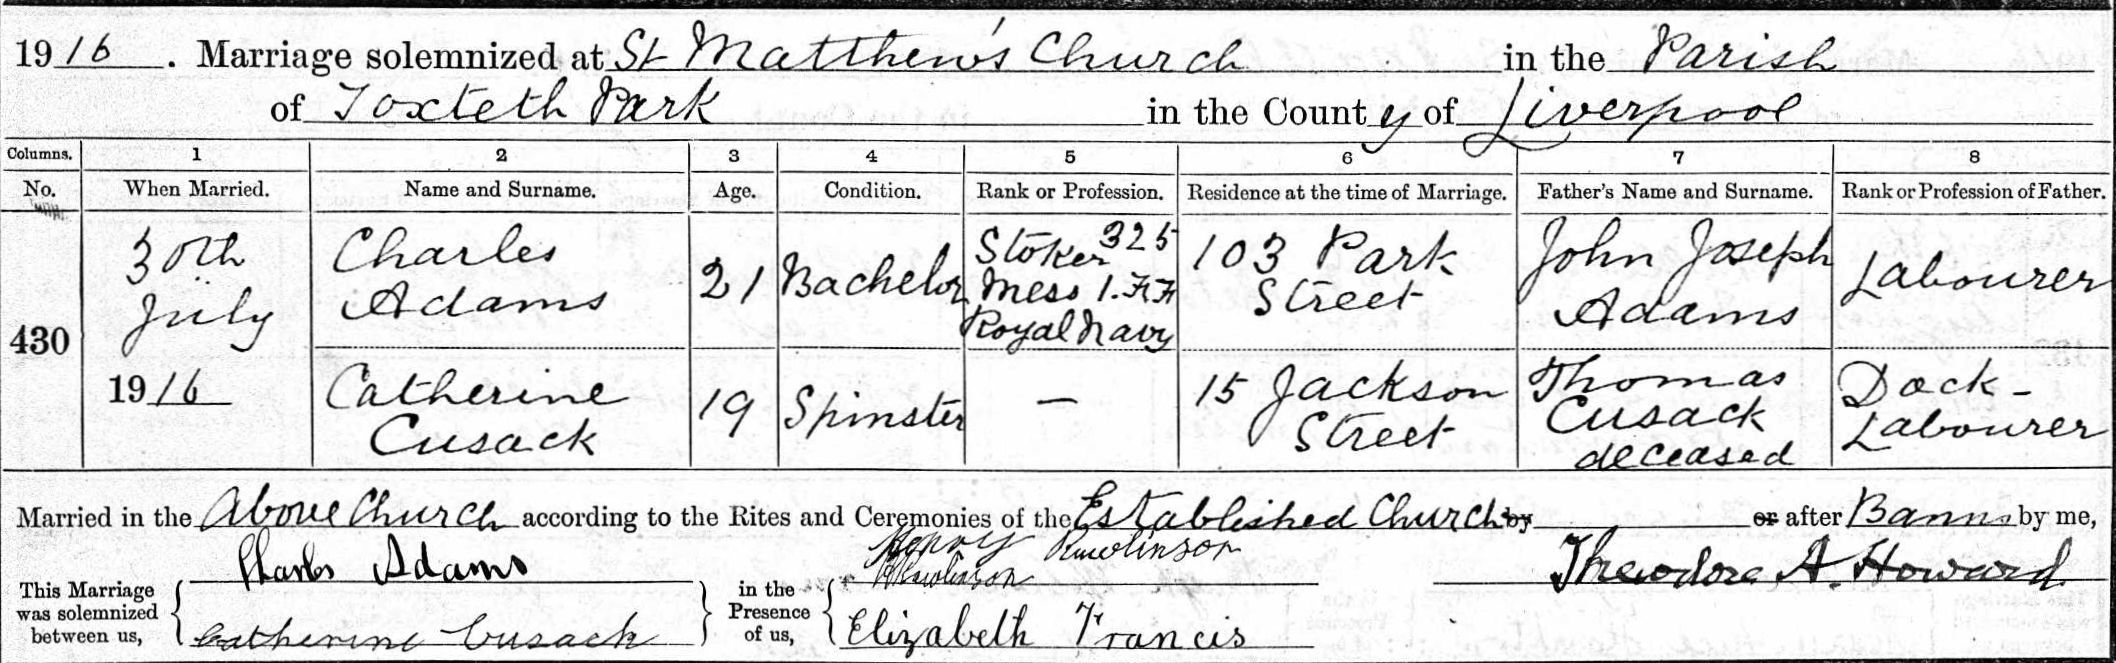 1916. Marriage solemnized at St Matthew's Church in the Parish
of Toxteth Park in the County of Liverpool
Columns. 1 2 3 4 5 6 7 8
No. When Married. Name and Surname. Age. Condition. Rank or Profession. Residence at the time of Marriage. Father's Name and Surname. Rank or Profession of Father.
430
30th
July
1916
Charles
Adams
21
Bachelor
Stoker 325
Mess 1.
Royal Navy
103 Park
Street
John Joseph
Adams
Labourer
Catherine
Cusack
19
Spinster
—
15 Jackson
Street
Thomas
Cusack
deceased
Dock-
Labourer
Married in the Above Church according to the Rites and Ceremonies of the Established Church by or after Banns by me,
This Marriage
was solemnized
between us,
Charles Adams
Catherine Cusack
in the
Presence
of us,
Henry Rawlinson
Rawlinson
Elizabeth Francis
Theodore A. Howard